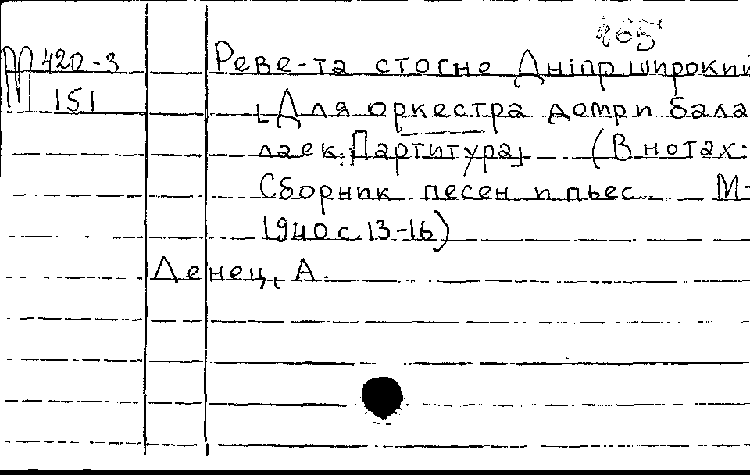 465
М 420-3 Реве-та стогне Дніпр широкий
151 [Для оркестра домр и бала
лаек. Партитура] (В нотах:
Сборник песен и пьес М-
1940 с. 13-16)
Денец, А.